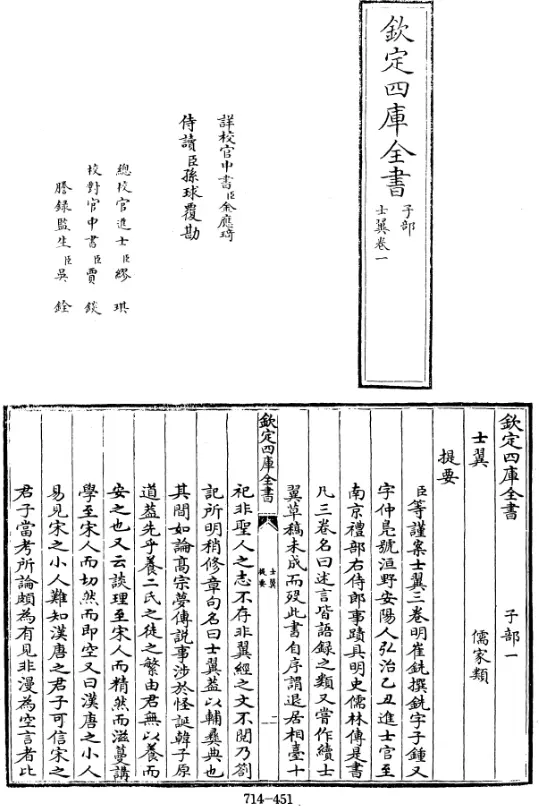 欽定四庫全書
子部
士翼卷一
詳校官中書臣金應琦
侍讀臣孫球覆勘
總校官進士臣繆琪
校對官中書臣賈鍈
謄錄監生臣吳銓
欽定四庫全書 子部一
士翼 儒家類
提要
臣等謹案士翼三卷明崔銑撰銑字子鍾又
字仲鳧號洹野安陽人弘治乙丑進士官至
南京禮部右侍郎事蹟具明史儒林傳是書
凡三卷名曰述言皆語錄之類又嘗作續士
翼草稿未成而歿此書自序謂退居相臺十
欽定四庫全書
士翼
提要
二
祀非聖人之志不存非翼經之文不閱乃劄
記所明稍修章句名曰士翼蓋以輔彝典也
其間如論高宗夢傅說事涉於怪誕韓子原
道蓋先乎養二氏之徒之繁由君無以養而
安之也又云談理至宋人而精然而滋蔓講
學至宋人而切然而即空又曰漢唐之小人
易見宋之小人難知漢唐之君子可信宋之
君子當考所論頗為有見非漫為空言者比
714-451